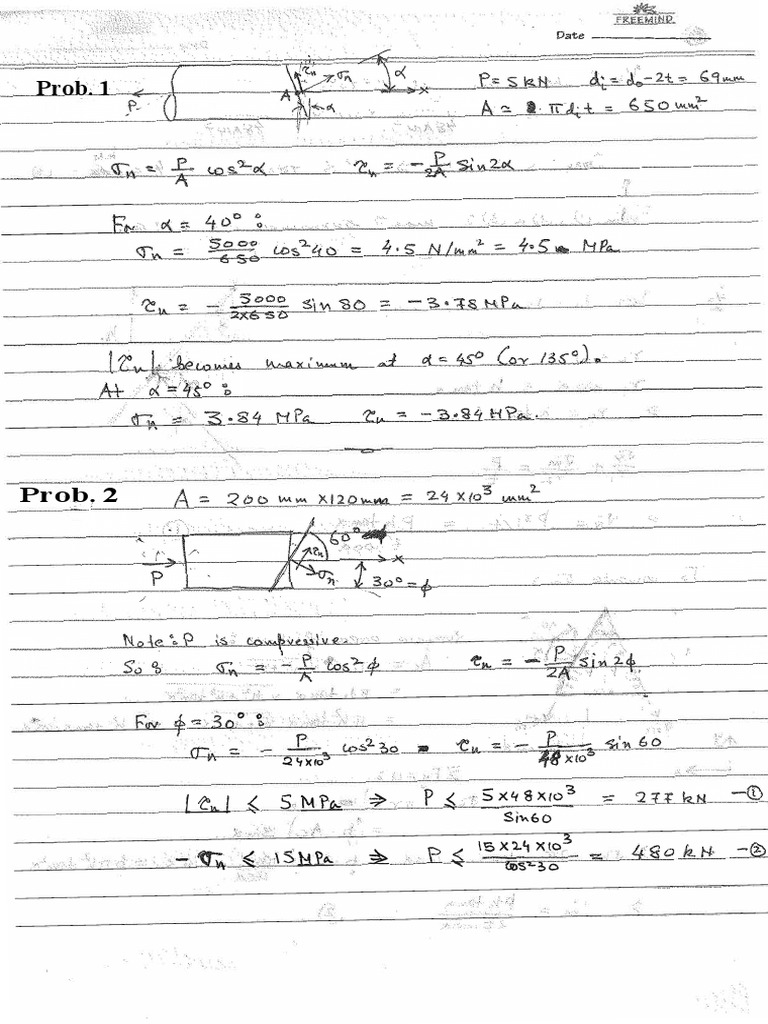 FREEMIND
Date
Prob. 1
P τn σn α x A α
P = 5 kN di = do - 2t = 69 mm
A ≃ π di t = 650 mm²
σn = P/A cos²α τn = - P/2A sin2α
For α = 40° :
σn = 5000/650 cos²40 = 4.5 N/mm² = 4.5 MPa
τn = - 5000/2×650 sin 80 = -3.78 MPa
|τn| becomes maximum at α = 45° (or 135°).
At α = 45° :
σn = 3.84 MPa τn = -3.84 MPa.
Prob. 2
A = 200 mm × 120 mm = 24 × 10³ mm²
P 60° τn σn x 30° = ϕ
Note: P is compressive.
So : σn = - P/A cos²ϕ τn = - P/2A sin 2ϕ
For ϕ = 30° :
σn = - P/24×10³ cos²30 τn = - P/48×10³ sin 60
|τn| ⩽ 5 MPa ⇒ P ⩽ 5×48×10³/sin60 = 277 kN -①
- σn ⩽ 15 MPa ⇒ P ⩽ 15×24×10³/cos²30 = 480 kN -②